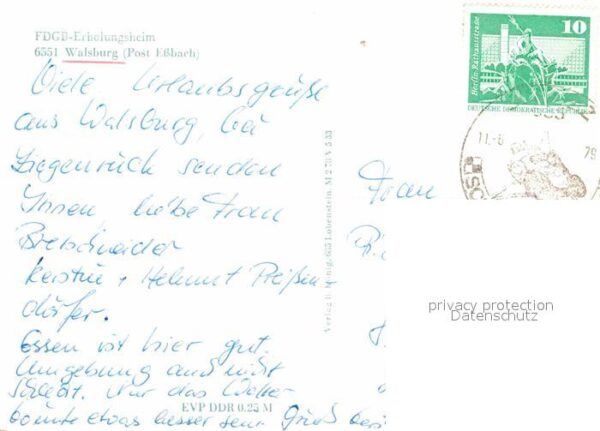 FDGB-Erholungsheim
6551 Walsburg (Post Eßbach)
Viele Urlaubsgrüße
aus Walsburg, bei
Ziegenrück senden
Ihnen liebe Frau
Bretschneider
Kerstin + Helmut Preißen-
dörfer.
Essen ist hier gut.
Umgebung auch nicht
schlecht. Nur das Wetter
könnte etwas besser sein. Gruß
EVP DDR 0,25 M
Verlag R. König, 685 Lobenstein, M 2 78 V 5 53
Berlin, Rathausstraße
10
DEUTSCHE DEMOKRATISCHE REPUBLIK
11.-8
79
Frau
privacy protection
Datenschutz